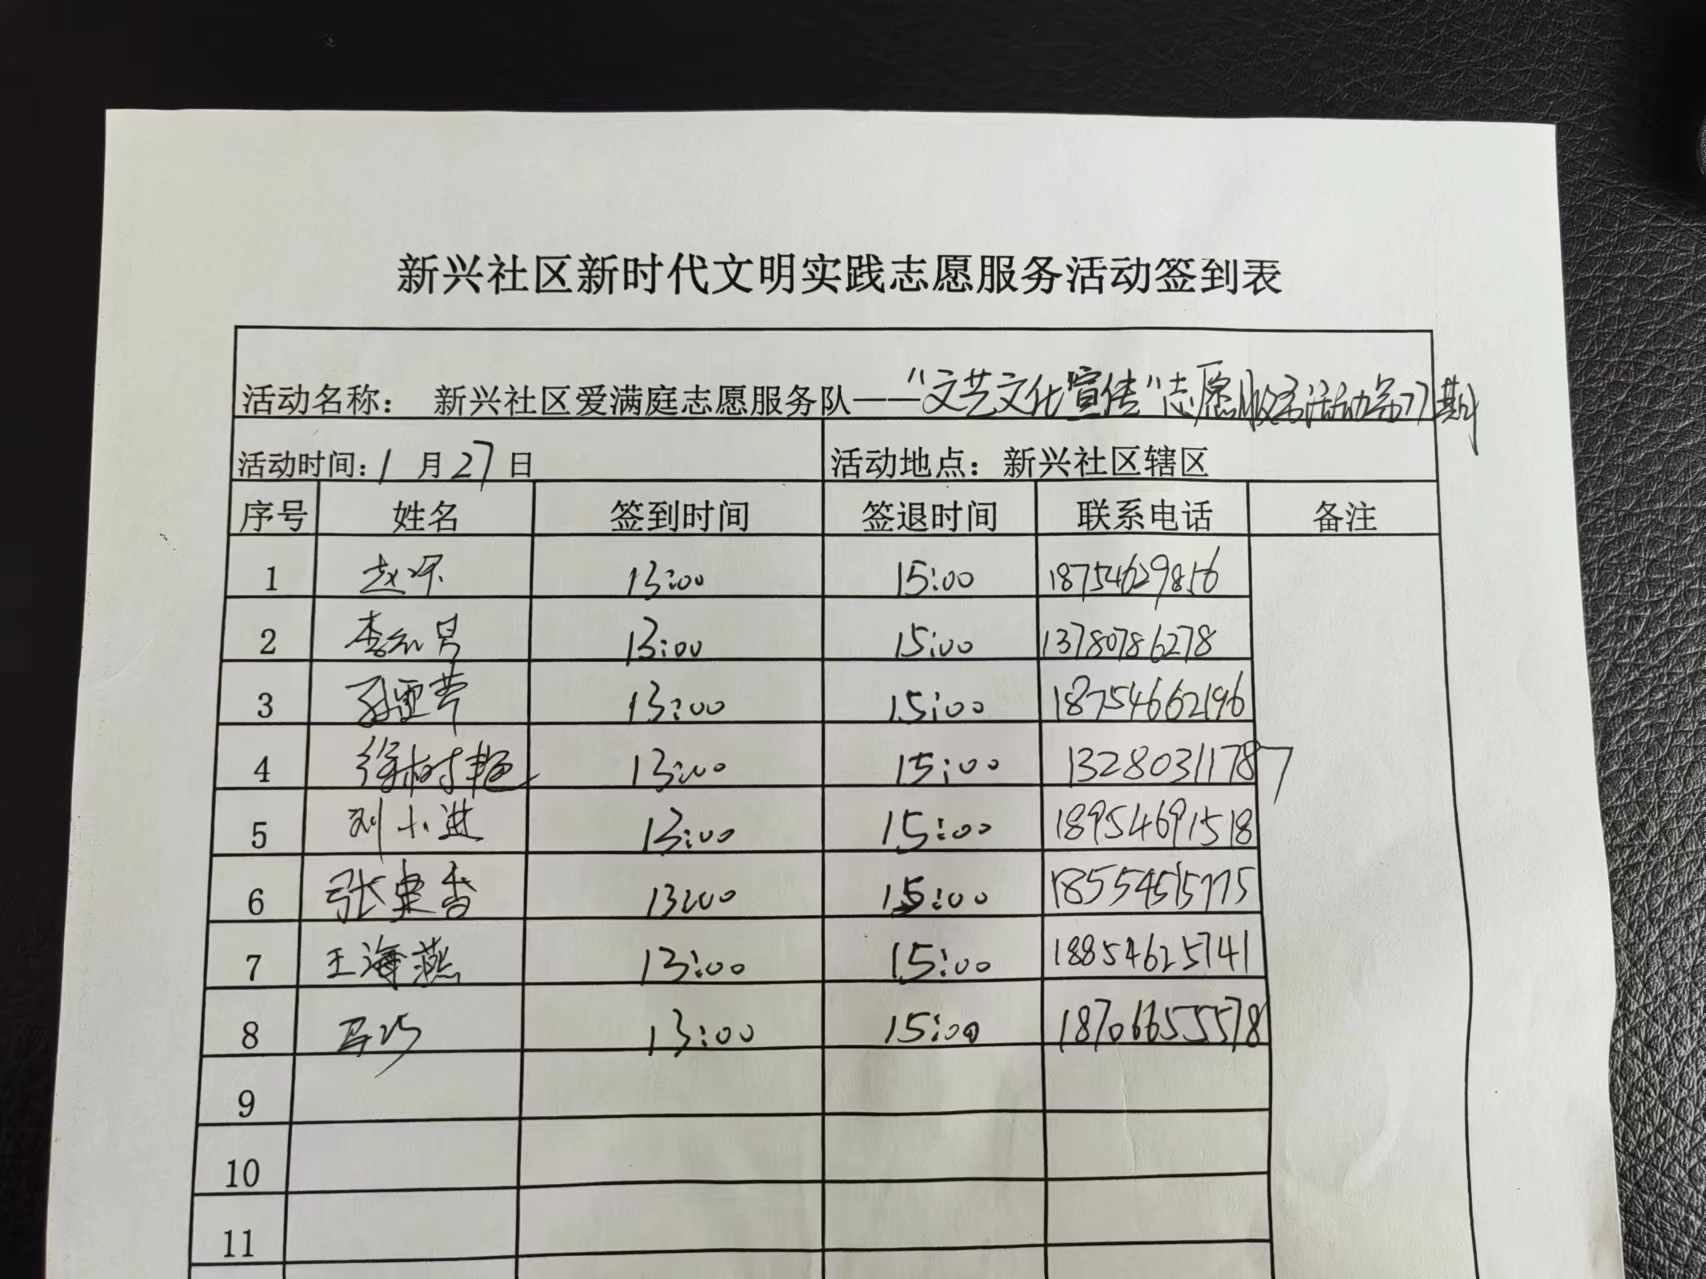 新兴社区新时代文明实践志愿服务活动签到表
活动名称： 新兴社区爱满庭志愿服务队——“文艺文化宣传”志愿服务活动第77期
活动时间：1月27日 活动地点：新兴社区辖区
序号 姓名 签到时间 签退时间 联系电话 备注
1 赵 13:00 15:00 18754629816
2 李 13:00 15:00 13780786278
3 孙 13:00 15:00 18754662196
4 徐树艳 13:00 15:00 13280311787
5 刘小进 13:00 15:00 18954691518
6 张 香 13:00 15:00 18554515775
7 王海燕 13:00 15:00 18854625741
8 马巧 13:00 15:00 18706655578
9
10
11